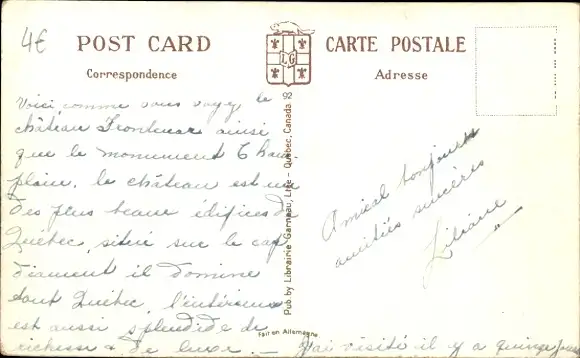 4€
POST CARD
CARTE POSTALE
Correspondence
Adresse
LG
92
Pub. by Librairie Garneau, Ltée - Québec, Canada.
Voici comme vous voyez le
château Frontenac ainsi
que le monument Cham-
plain. le château est un
des plus beaux édifices de
Québec, situé sur le cap
diament il domine
tout Québec, l'intérieur
est aussi splendide de
richesse & de luxe. — J'ai visité il y a quinze jours
amitiés sincères
Liliane
Fait en Allemagne